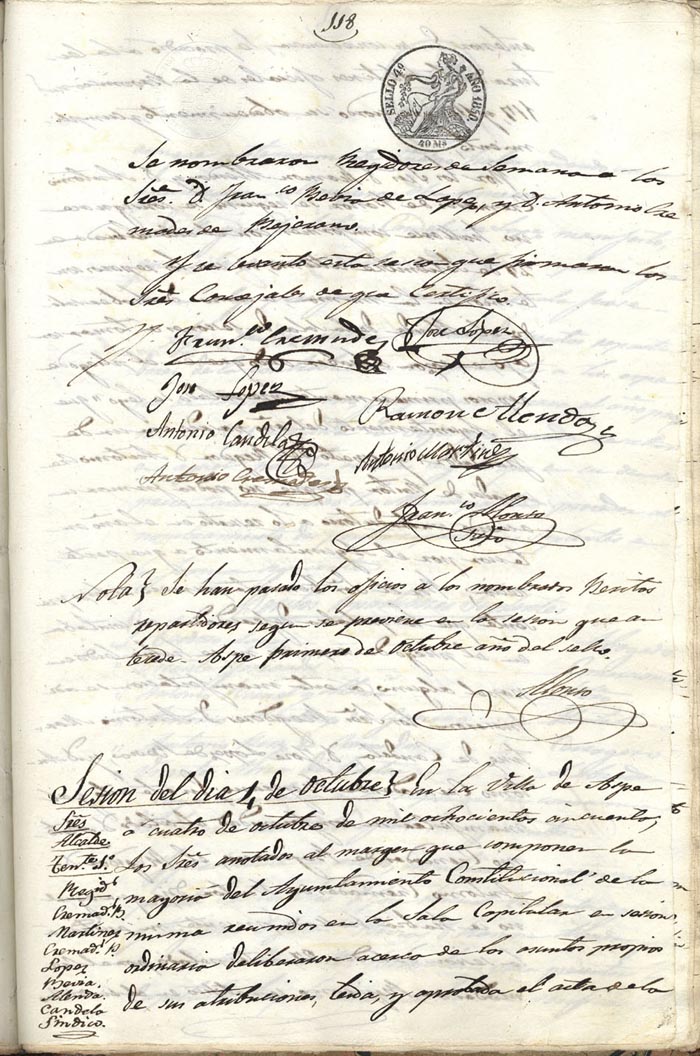 118
SELLO 4º AÑO 1850.
40 Ms
Se nombraron Regidores de Semana á los
Sres. D. Franco Mevia de Lopez, y D. Antonio Cre
mades de Mejorano.
Y se levanto esta sesion que firmaran los
Sres Concejales de que Certifico.
Franco Cremades Jose Lopez
Jose Lopez
Ramon Alenda
Antonio Candela
Antonio Martinez
Antonio Cremades
Franco Alonso
Nota Se han pasado los oficios á los nombrados Peritos
repartidores segun se previene en la sesion que an
tecede. Aspe primero de Octubre año del sello.
Alonso
Sesion del dia 4 de Octubre En la Villa de Aspe
a cuatro de octubre de mil ochocientos cincuenta,
los Sres anotados al margen que componen la
mayoria del Ayuntamiento Constitucional de la
misma reunidos en la Sala Capitular en sesion
ordinaria deliberaron acerca de los asuntos propios
de sus atribuciones, leida, y aprobada el acta de la
Sres
Alcalde
Tente 1º
Regids
Cremads B.
Martinez
Cremads P.
Lopez
Mevia.
Alenda.
Candela
Sindico.